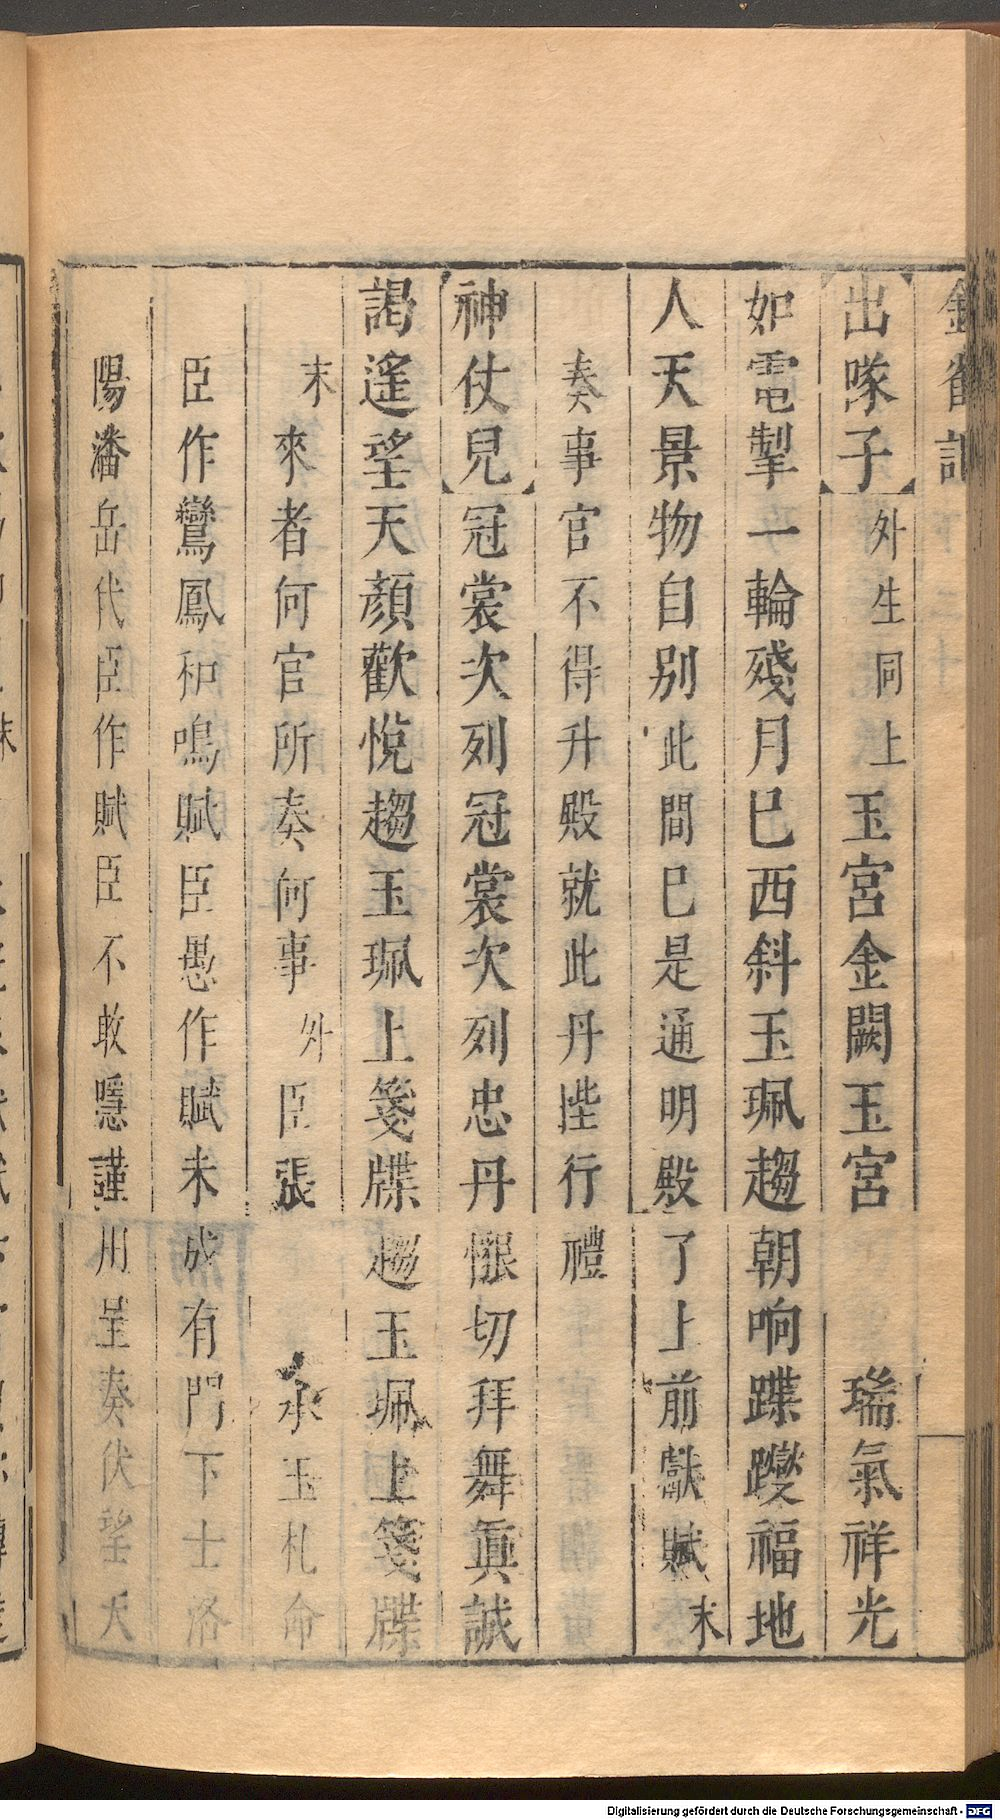 出隊子外生同上玉宮金闕玉宮瑞氣祥光
如電掣一輪殘月巳西斜玉珮趨朝响蹀躞福地
人天景物自别此間巳是通明殿了上前獻賦末
奏事官不得升殿就此丹陛行禮
神仗兒冠裳次列冠裳次列忠丹悃切拜舞真誠
謁遙望天顔歡悅趨玉珮上箋牒趨玉珮上箋牒
末來者何官所奏何事外臣張承玉札命
臣作鸞鳳和鳴賦臣愚作賦未成有門下士洛
陽潘岳代臣作賦臣不敢隱謹用呈奏伏望天
Digitalisierung gefördert durch die Deutsche Forschungsgemeinschaft - DFG